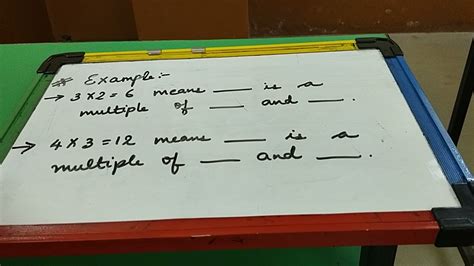 * Example:-
→ 3×2=6 means __ is a
multiple of __ and __.
→ 4×3=12 means __ is a
multiple of __ and __.